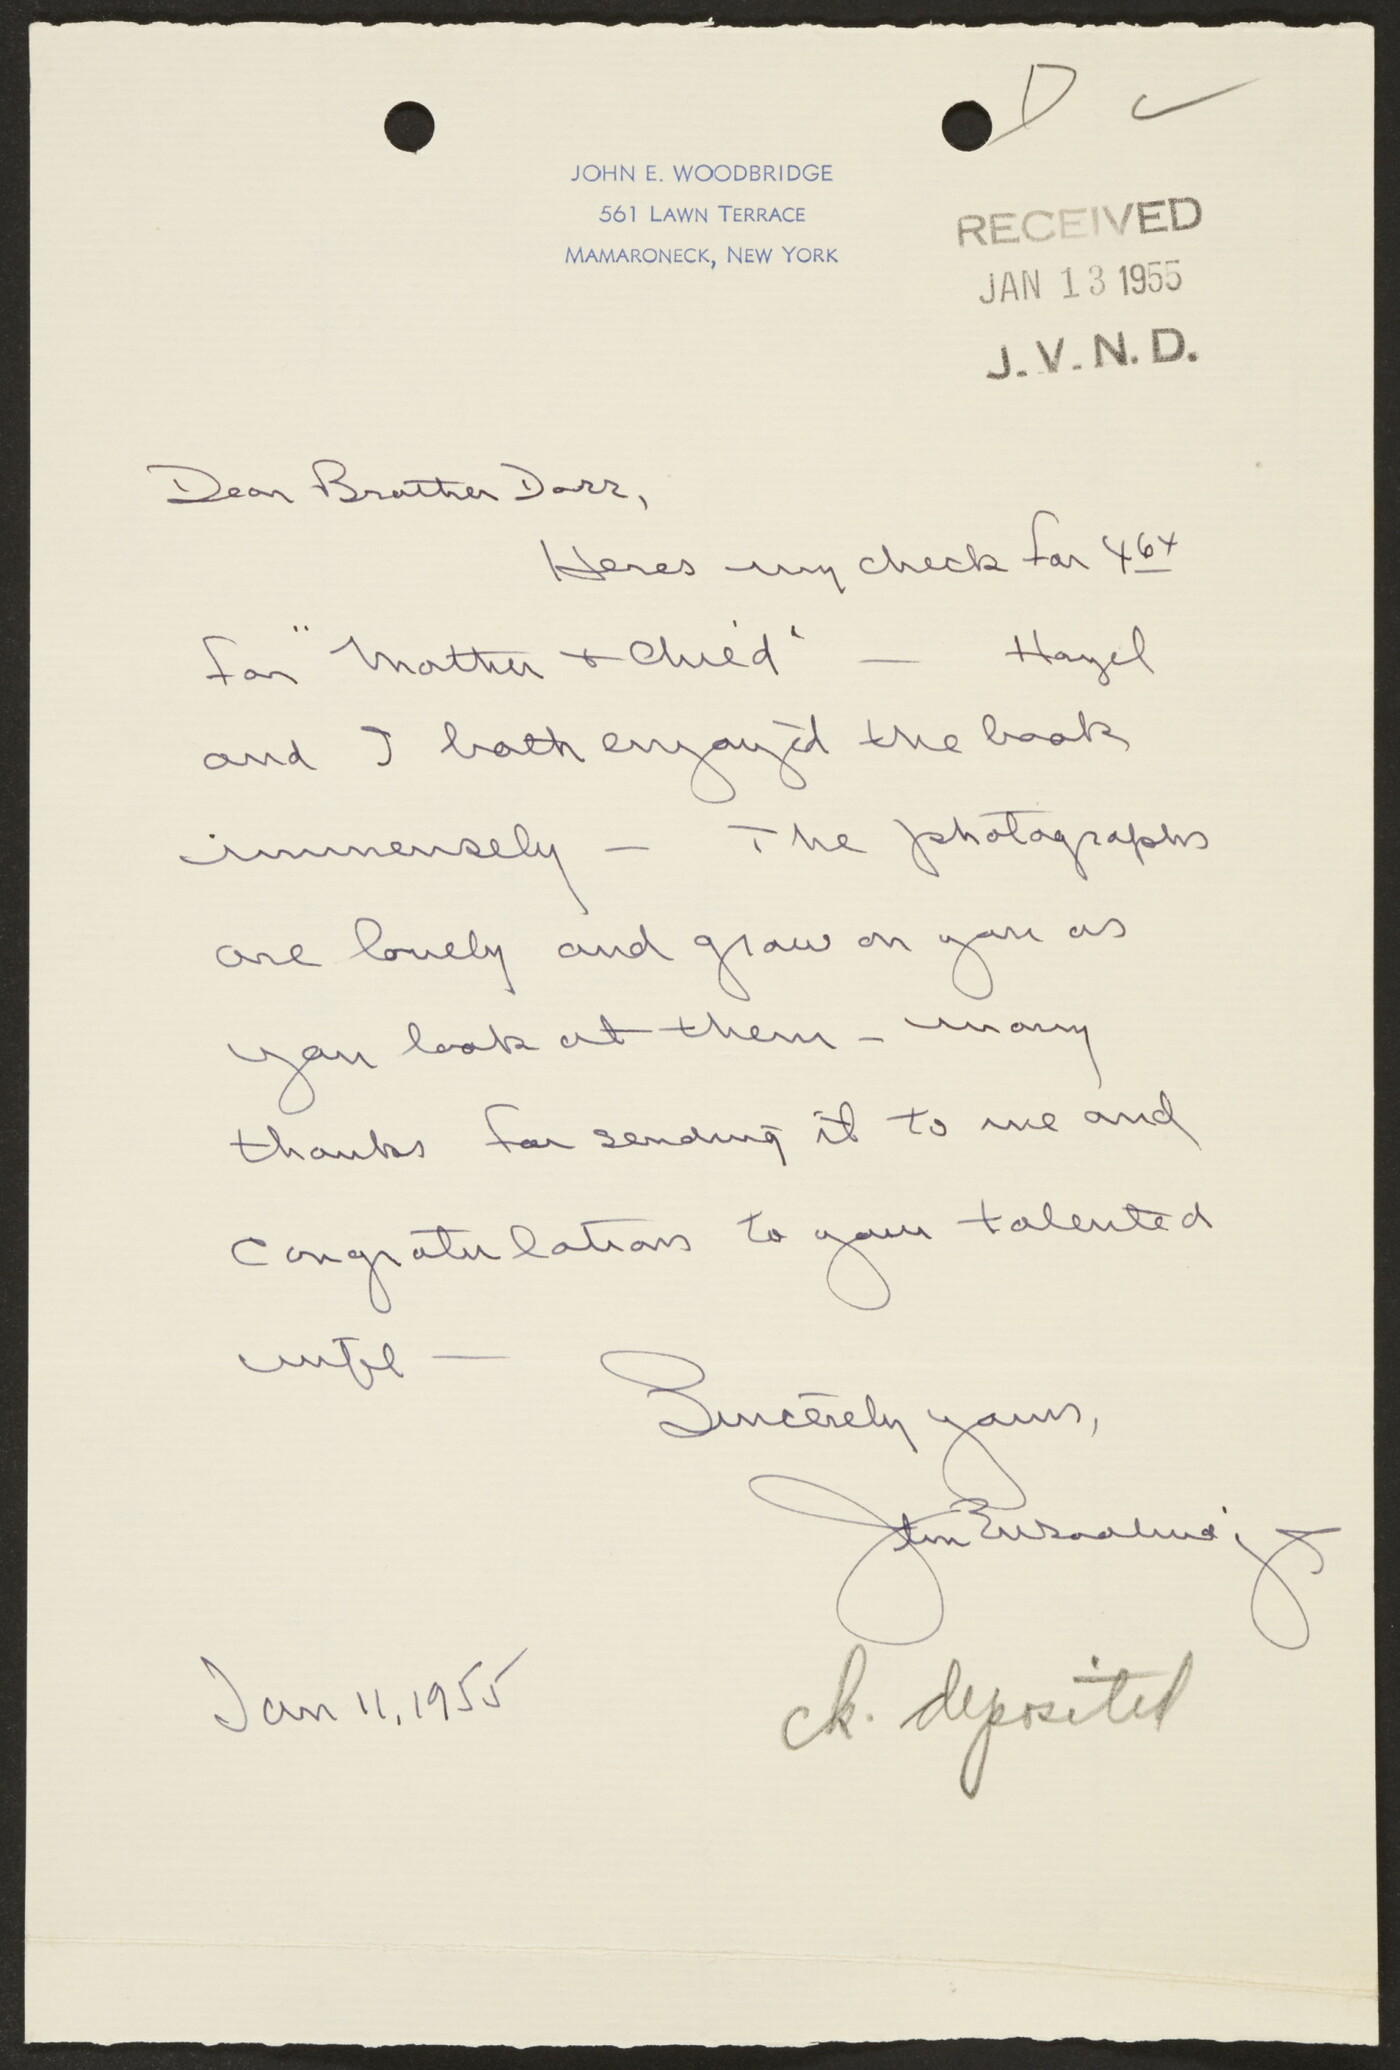 D ✓
JOHN E. WOODBRIDGE
561 LAWN TERRACE
MAMARONECK, NEW YORK
RECEIVED
JAN 13 1955
J.V.N.D.
Dear Brother Dorr,
Heres my check for 4 64
for "Mother + Child" — Hazel
and I both enjoy'd the book
immensely — The photographs
are lovely and grow on you as
you look at them — many
thanks for sending it to me and
congratulations to your talented
wife —
Sincerely yours,
John E Woodbridge
Jan 11, 1955
ck. deposited